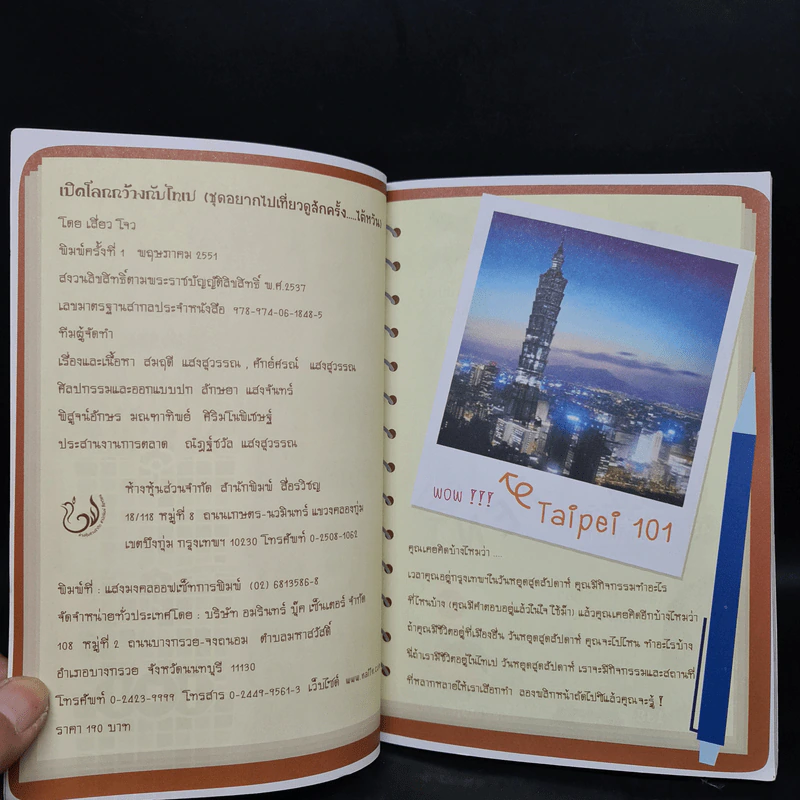 เปิดโลกกว้างกับไทเป (ชุดอยากไปเที่ยวดูสักครั้ง.....ไต้หวัน)
โดย เสี่ยว โจว
พิมพ์ครั้งที่ 1 พฤษภาคม 2551
สงวนลิขสิทธิ์ตามพระราชบัญญัติลิขสิทธิ์ พ.ศ.2537
เลขมาตรฐานสากลประจำหนังสือ 978-974-06-1848-5
ทีมผู้จัดทำ
เรื่องและเนื้อหา สมฤดี แสงสุวรรณ , ศักย์ศรณ์ แสงสุวรรณ
ศิลปกรรมและออกแบบปก ลักษอา แสงจันทร์
พิสูจน์อักษร มณฑาทิพย์ ศิริมโนพิเชษฐ์
ประสานงานการตลาด ณัฏฐ์ชวัล แสงสุวรรณ
ห้างหุ้นส่วนจำกัด สำนักพิมพ์ สื่อรวิชญ
18/118 หมู่ที่ 8 ถนนเกษตร-นวมินทร์ แขวงคลองกุ่ม
เขตบึงกุ่ม กรุงเทพฯ 10230 โทรศัพท์ 0-2508-1062
พิมพ์ที่ : แสงมงคลออฟเซ็ทการพิมพ์ (02) 6813586-8
จัดจำหน่ายทั่วประเทศโดย : บริษัท อมรินทร์ บุ๊ค เซ็นเตอร์ จำกัด
108 หมู่ที่ 2 ถนนบางกรวย-จงถนอม ตำบลมหาสวัสดิ์
อำเภอบางกรวย จังหวัดนนทบุรี 11130
โทรศัพท์ 0-2423-9999 โทรสาร 0-2449-9561-3 เว็บไซต์
ราคา 190 บาท
wow !!!
Taipei 101
คุณเคยคิดบ้างไหมว่า ...
เวลาคุณอยู่กรุงเทพฯในวันหยุดสุดสัปดาห์ คุณมีกิจกรรมทำอะไร
ที่ไหนบ้าง (คุณมีคำตอบอยู่แล้วในใจ ใช่มั๊ย) แล้วคุณเคยคิดอีกบ้างไหมว่า
ถ้าคุณมีชีวิตอยู่ที่เมืองอื่น วันหยุดสุดสัปดาห์ คุณจะไปไหน ทำอะไรบ้าง
นี่ถ้าเรามีชีวิตอยู่ในไทเป วันหยุดสุดสัปดาห์ เราจะมีกิจกรรมและสถานที่
ที่หลากหลายให้เราเลือกทำ ลองพลิกหน้าถัดไปซิแล้วคุณจะรู้ !